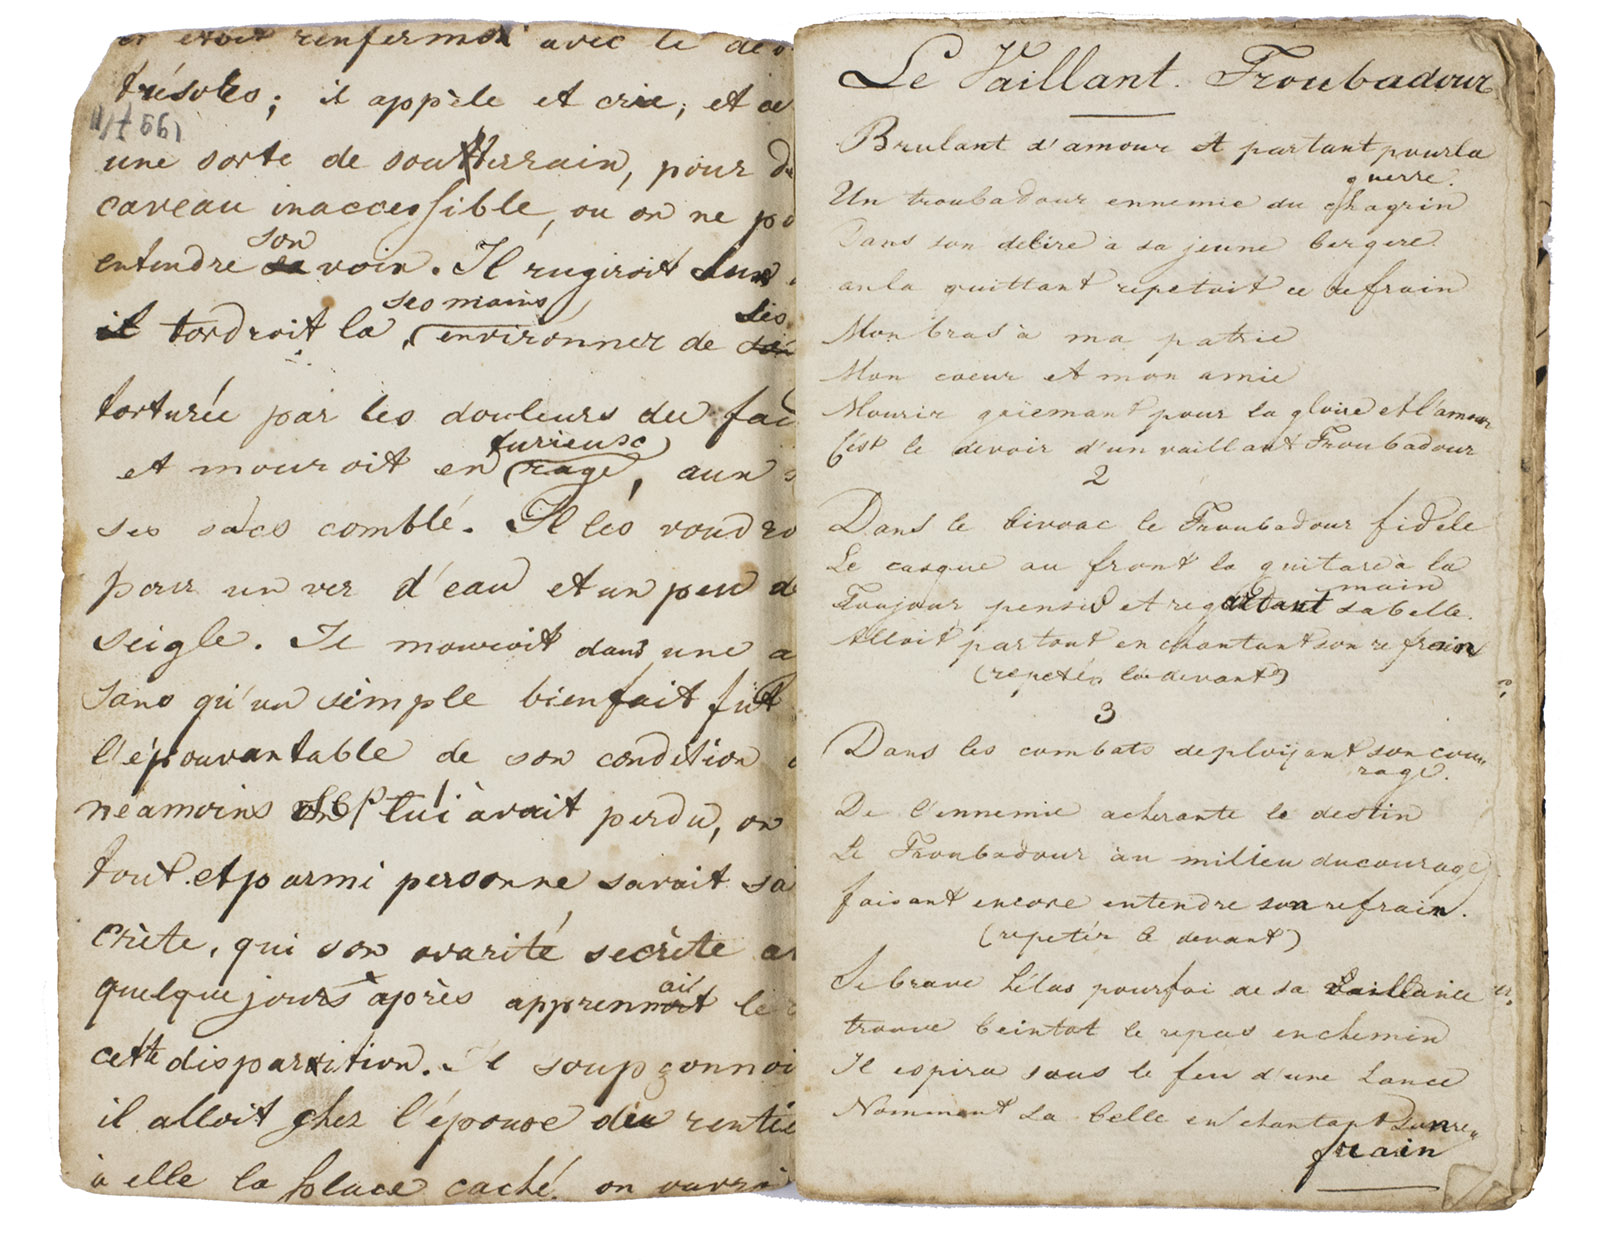 et etoit renfermé avec le
trésoles; il appèle et crie, et
une sorte de soutterrain, pour
caveau inaccessible, ou on ne
son
entendre sa voix. Il rugiroit
ses mains
il tordroit la environner de
ses
torturée par les douleurs de
furieuse
et mouroit en rage, aux
ses sacs comblé. Il les voud
pour un ver d'eau et un peu
seigle. Il mouroit dans une
sans qu'un simple bienfait fut
l'épouvantable de son condition
néamoins lui avait perdu, on
tout. et parmi personne savait
crète, qui son avarité secrète
ait
quelque jours après apprennoit le
cette disparition. Il soupçonnoi
il alloit chez l'épouse du rentie
à elle la place caché. on
Le Vaillant. Troubadour
Brulant d'amour et partant pour la
guerre.
Un troubadour ennemie du chagrin
Dans son delire à sa jeune bergere
an la quittant repetait ce refrain
Mon bras à ma patrie
Mon coeur et mon amie
Mourir gaiemant pour la gloire et l'amour
C'est le devoir d'un vaillant Troubadour
2
Dans le bivoac le Troubadour fidele
Le casque au front la guitare à la
main
Toujour pensid et regardant sa belle.
Alloit partout en chantant son refrain
(repetés le devant)
3
Dans les combats deployant son cou„
rage.
De l'ennemie acherante le destin
Le Troubadour au milieu du courage
faisant encore entendre son refrain.
(repetér le devant)
Le brave hélas pour foi de sa vaillance
trouve beintot le repas en chemin
Il expira sous le feu d'une Lance
Nommant sa belle en chantant son re„
frain